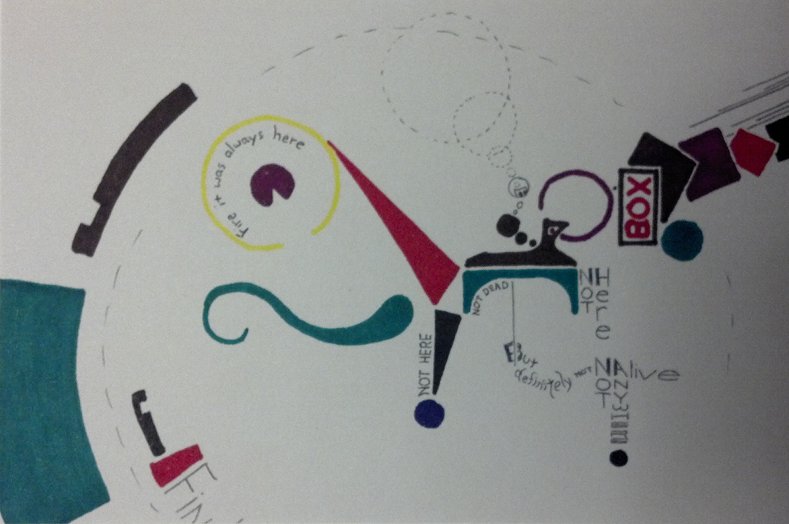 Fire it was always here
BOX
NOT DEAD
NOT
Here
NOT HERE
But
definitely NOT
NOT
Alive
FIN